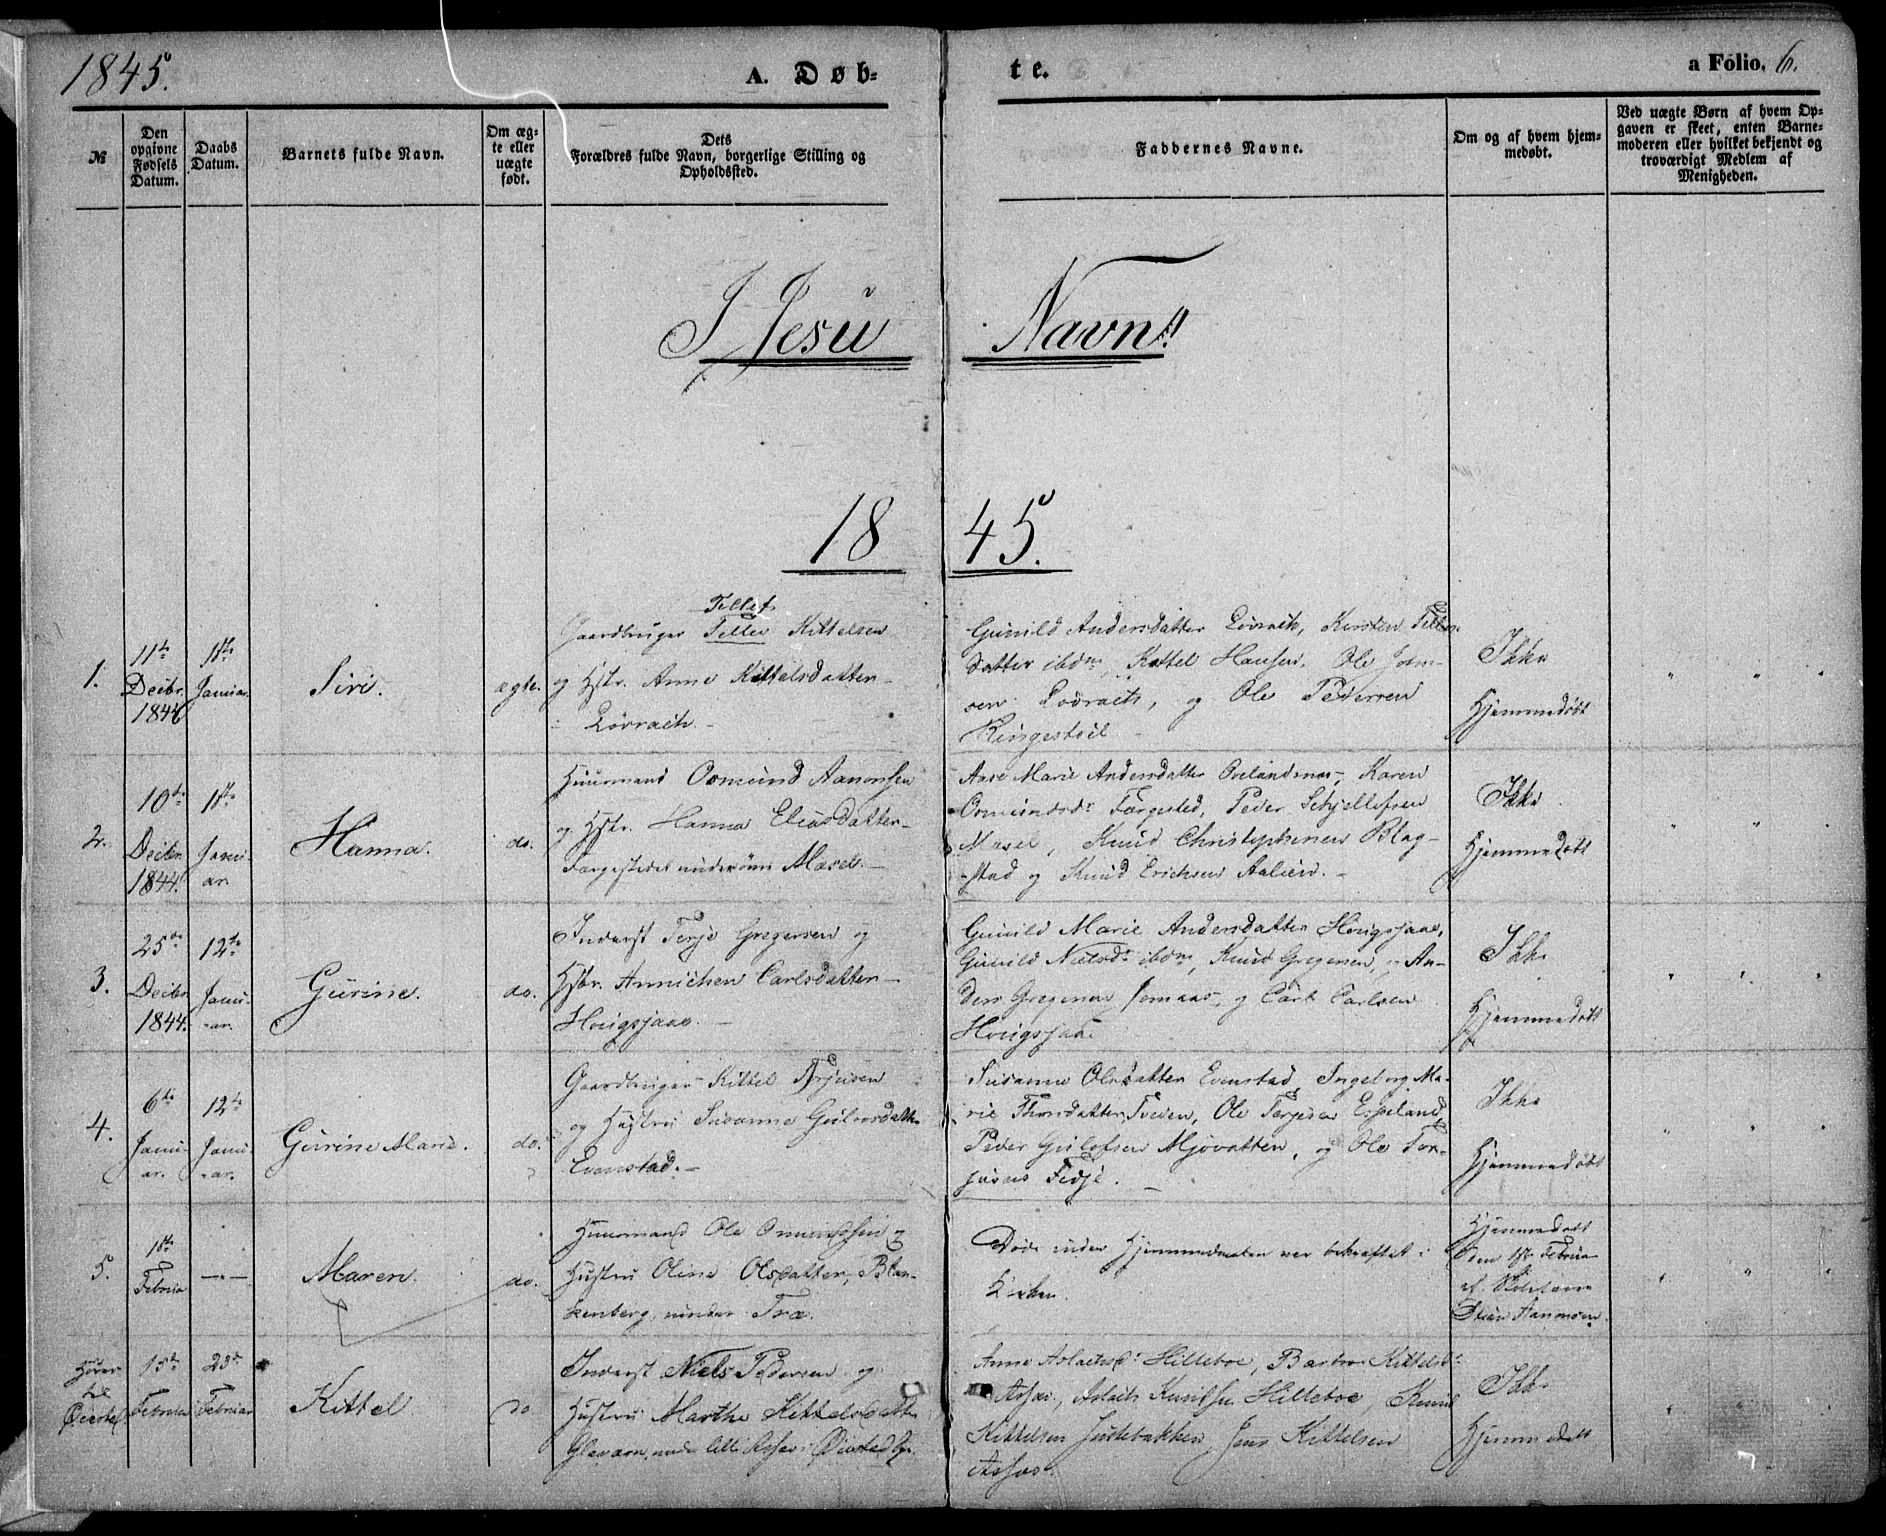 1845.
A. Døb=
te.
a Folio. 6.
№
Den opgivne Fødsels Datum.
Daabs Datum.
Barnets fulde Navn.
Om æg-
te eller
uægte
født.
Dets
Forældres fulde Navn, borgerlige Stilling og
Opholdssted.
Faddernes Navne.
Om og af hvem hjem-
medøbt.
Ved uægte Børn af hvem Op-
gaven er skeet, enten Barne-
moderen eller hvilket bekjendt og
troværdigt Medlem af
Menigheden.
I Jesu Navn!!
1845.
1.
11te
Decbr.
1844
11te
Januar.
Siri.
ægte.
Tellef
Gaardbruger Tellev Kittelsen
og Hstr. Anne Kittelsdatter
Løvrach.
Gunild Andersdatter Løvrach, Kirsten Tellevs-
datter ibdm, Kittel Hansen, Ole
sen Løvrach, og Ole Pedersen
Ringestøil
Ikke
Hjemmedøbt
2.
10de
Decbr.
1844.
11te
Janu-
ar.
Hanna.
do.
Huusmand Osmund Aanonsen
og Hstr. Hanna Eliasdatter
Færgestedet under Messel.
Aase Marie Andersdatter Karen
Osmundsdr Færgested, Peder Schjellefsen
Messel, Knud Christophersen Blag-
stad og Knud Erichsen
Ikke
Hjemmedøbt
3.
25de
Decbr.
1844.
12te
Janu-
ar.
Gurine.
do.
Inderst Terje Gregersen og
Hstr. Annichen Carlsdatter
Hougsjaae.
Gunild Marie Andersdatter Hougsjaae,
Gunild Nielsdr ibdm, Knud Gregersen, An-
ders Gregersen og Carl Carlsen
Hougsjaae
Ikke
Hjemmedøbt
4.
6te
Janu-
ar.
12te
Janu-
ar.
Gurine Marie.
do.
Gaardbruger Kittel Terjesen
og Hustru Susanne Gulovsdatter
Evenstad.
Susanne Olsdatter Evenstad, Ingeborg Ma-
rie Thorsdatter Tveden, Ole Terjesen Espeland
Peder Gulofsen Mjøvatten, og Ole Ter-
jesens Fedje.
Ikke
Hjemmedøbt
5.
1ste
Februar
Maren.
do.
Huusmand Ole Omundsen og
Hustru Oline Olsdatter, Blan-
kenberg under Træ.
Døde inden Hjemmedaaben var bekræftet i
Kirken.
Hjemmedøbt
den 1ste Februar
af Skolelærer
Aanonsen
Hører
til
Øiestad
15de
Februar
23de
Februar
Kittel
do
Inderst Niels Pedersen og
Hustru Marthe Kittelsdatter
under lille i Øiestad
Anne Aslachsdr Hilleboe, Kittelsdr
Aslach Knudsen Hilleboe, Knud
Kittelsen Jens Kittelsen
Ikke
Hjemmedøbt